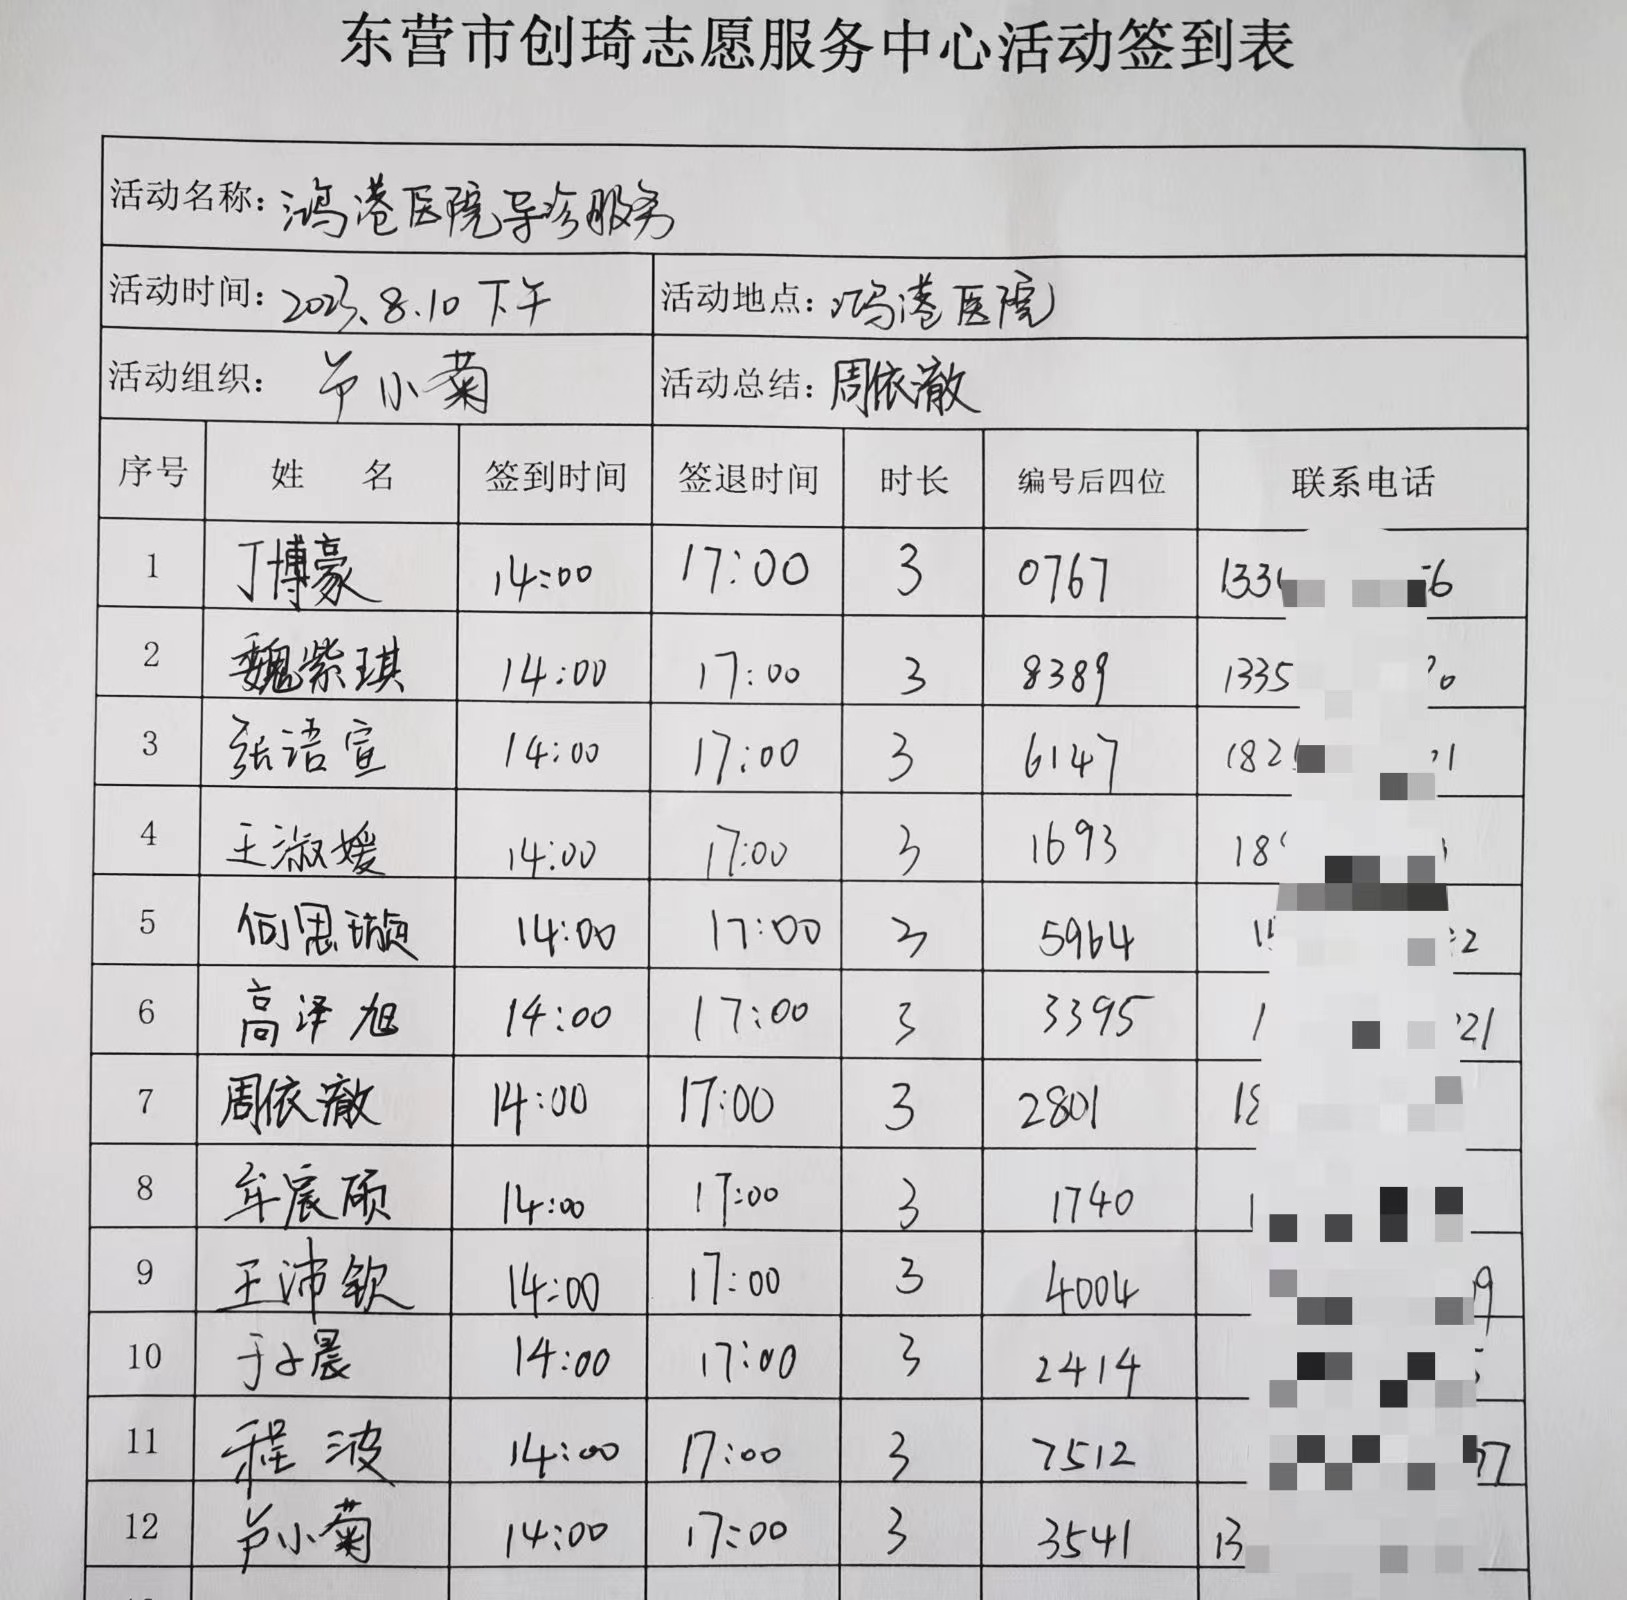 东营市创琦志愿服务中心活动签到表
活动名称：鸿港医院导诊服务
活动时间：2023.8.10 下午 活动地点：鸿港医院
活动组织：芦小菊 活动总结：周依澈
序号 姓 名 签到时间 签退时间 时长 编号后四位 联系电话
1 丁博豪 14:00 17:00 3 0767 133 56
2 魏紫琪 14:00 17:00 3 8389 1335 70
3 张语宣 14:00 17:00 3 6147 182 21
4 王淑媛 14:00 17:00 3 1693 18
5 何思璇 14:00 17:00 3 5964 15 2
6 高泽旭 14:00 17:00 3 3395 1 21
7 周依澈 14:00 17:00 3 2801 18
8 牟宸硕 14:00 17:00 3 1740 1
9 王沛钦 14:00 17:00 3 4004 9
10 于子晨 14:00 17:00 3 2414
11 程波 14:00 17:00 3 7512 77
12 芦小菊 14:00 17:00 3 3541 13